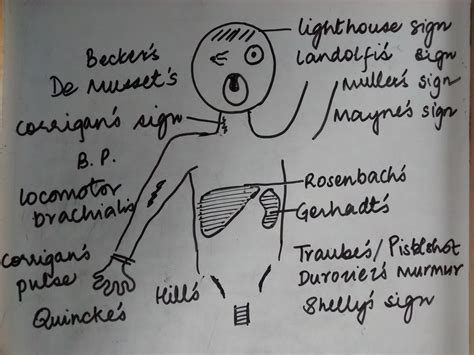 lighthouse sign
Becker's
Landolfi's sign
De Musset's
Muller's sign
Corrigan's sign
Mayne's sign
B.P.
Locomotor
brachialis
Rosenbach's
Gerhadt's
Corrigan's
pulse
Traube's/ Pistolshot
Duroviez's murmur
Quincke's
Hill's
Shelly's sign